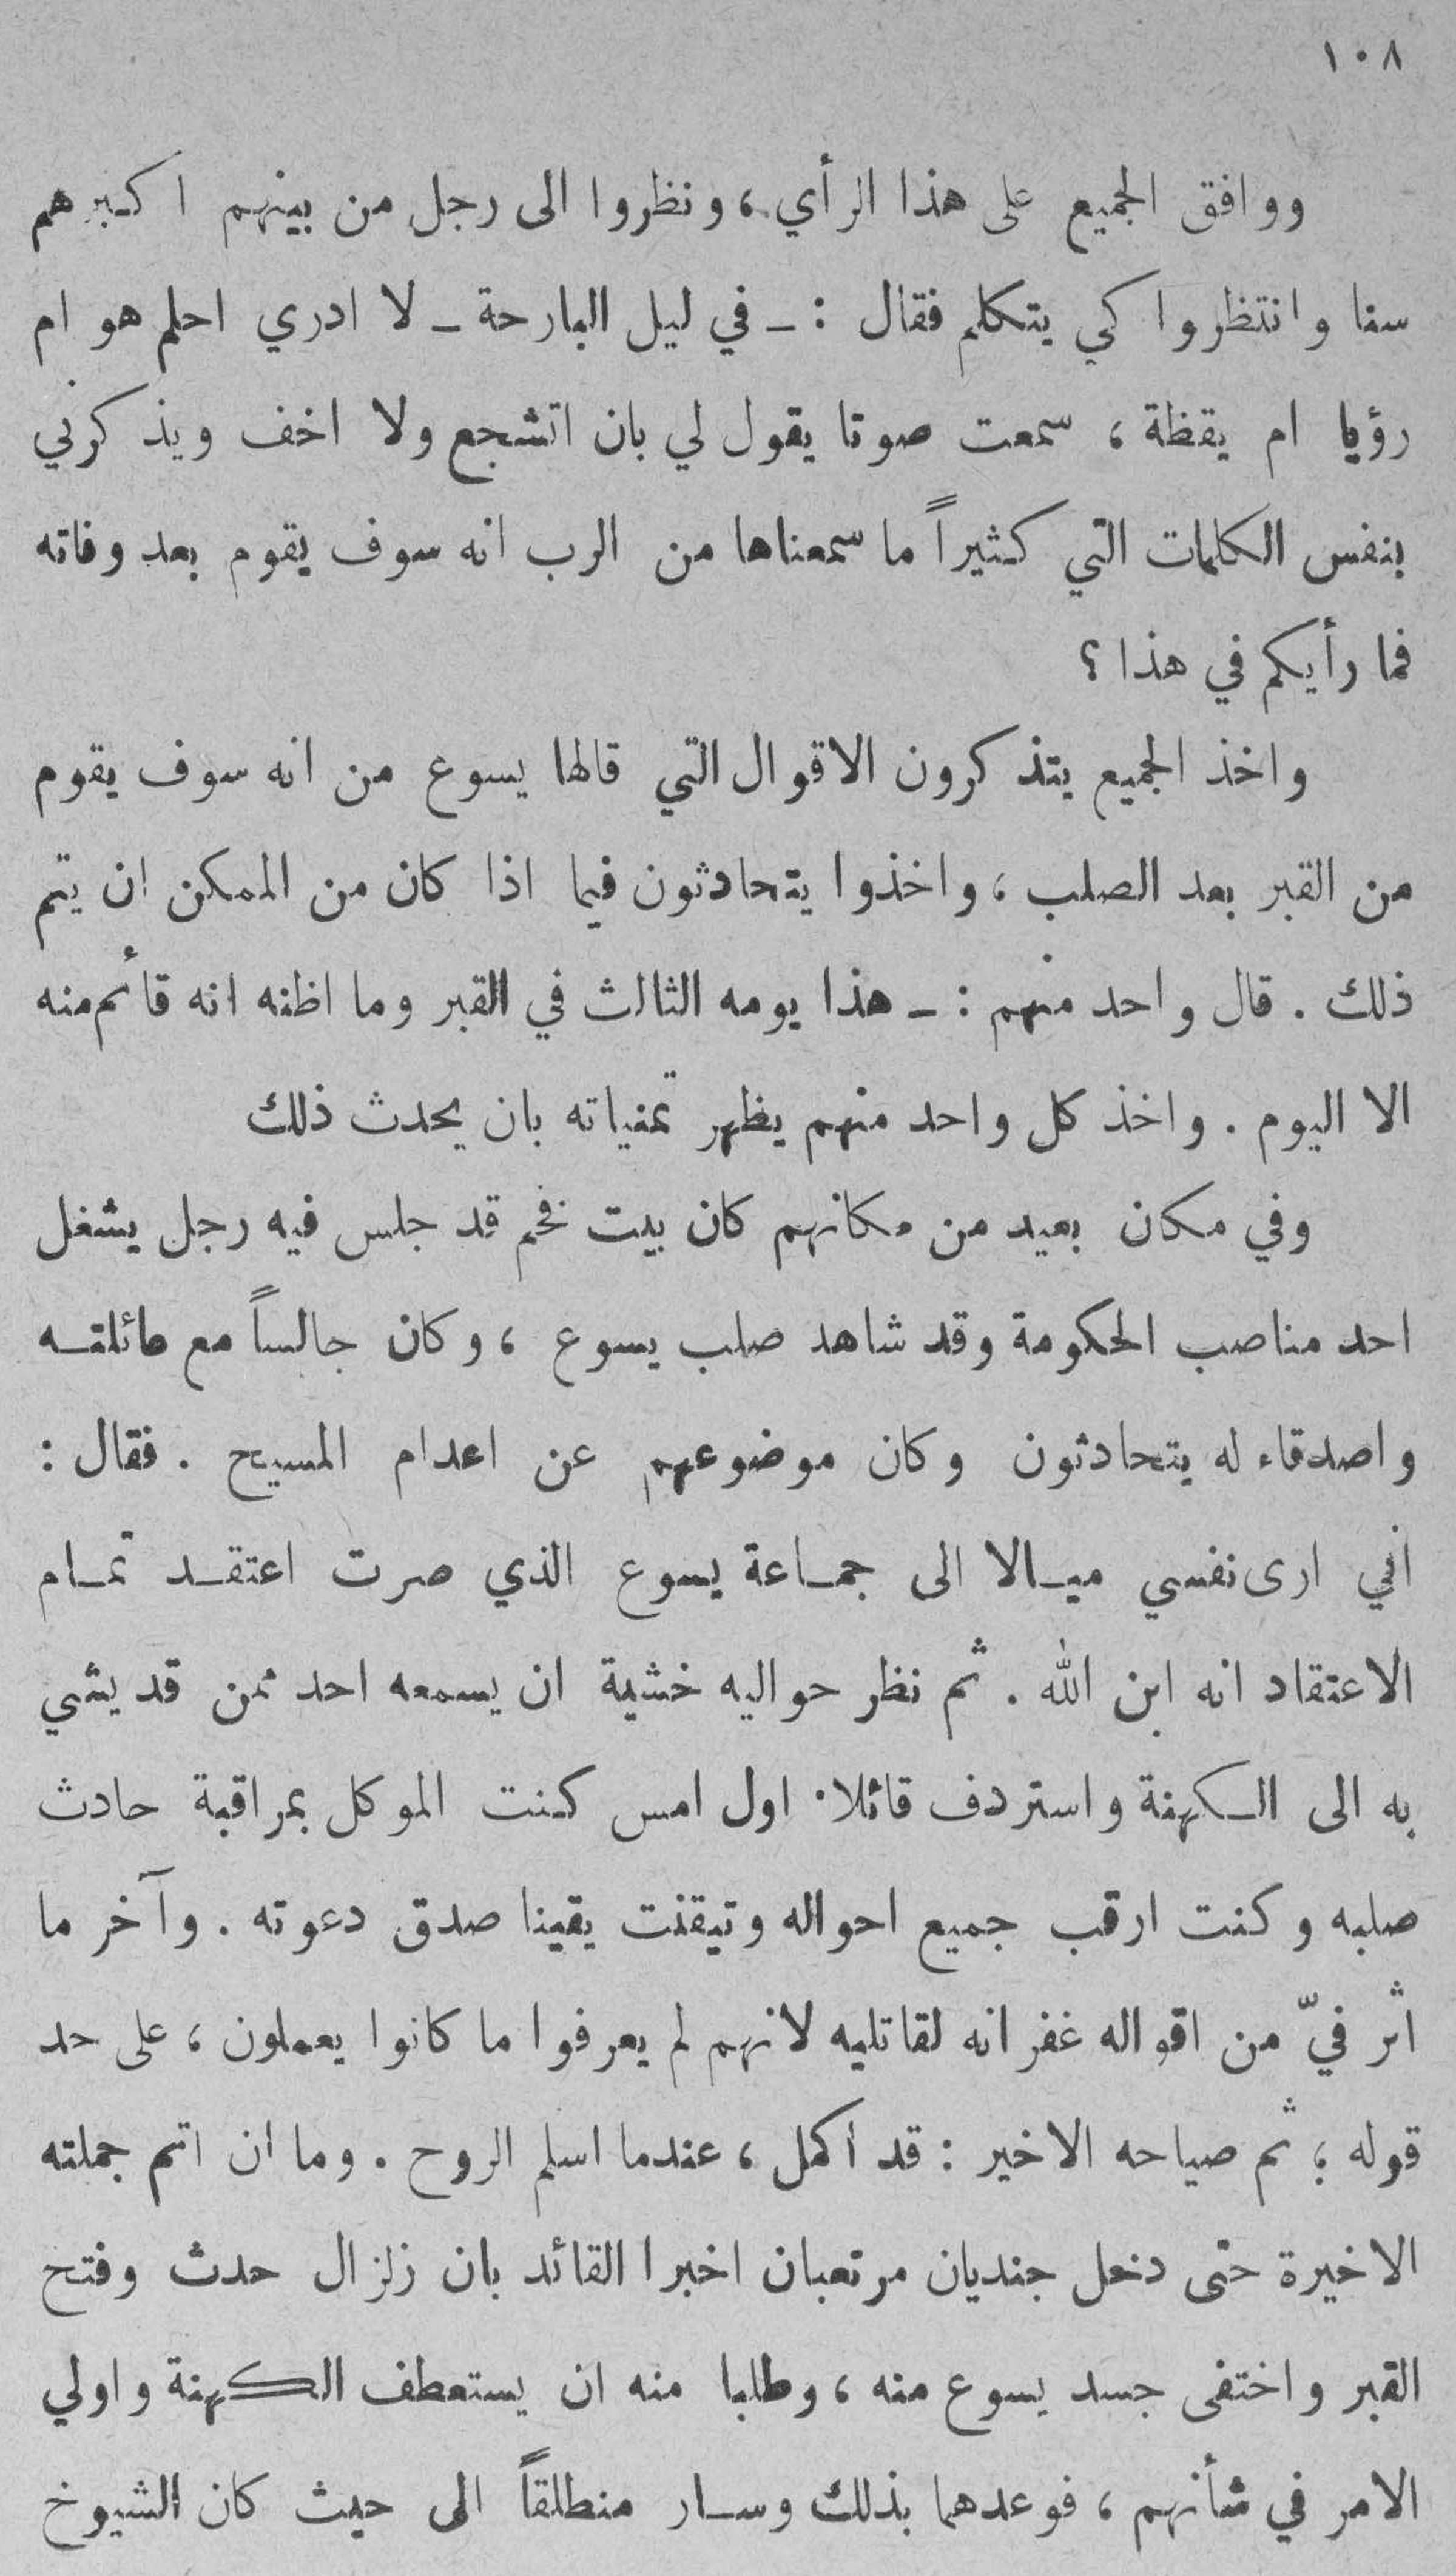 ١٠٨
ووافق الجميع على هذا الرأي ، ونظروا الى رجل من بينهم اكبرهم
سنا وانتظروا كي يتكلم فقال : ـ في ليل البارحة ـ لا ادري احلم هو ام
رؤيا ام يقظة ، سمعت صوتا يقول لي بان اتشجع ولا اخف ويذكرني
بنفس الكلمات التي كثيراً ما سمعناها من الرب انه سوف يقوم بعد وفاته
فما رأيكم في هذا ؟
واخذ الجميع يتذكرون الاقوال التي قالها يسوع من انه سوف يقوم
من القبر بعد الصلب ، واخذوا يتحادثون فيما اذا كان من الممكن ان يتم
ذلك . قال واحد منهم : ـ هذا يومه الثالث في القبر وما اظنه انه قائم منه
الا اليوم . واخذ كل واحد منهم يظهر تمنياته بان يحدث ذلك
وفي مكان بعيد من مكانهم كان بيت فخم قد جلس فيه رجل يشغل
احد مناصب الحكومة وقد شاهد صلب يسوع ، وكان جالساً مع عائلته
واصدقاء له يتحادثون وكان موضوعهم عن اعدام المسيح . فقال :
اني ارى نفسي ميالا الى جماعة يسوع الذي صرت اعتقد تمام
الاعتقاد انه ابن الله . ثم نظر حواليه خشية ان يسمعه احد ممن قد يشي
به الى الكهنة واستردف قائلا . اول امس كنت الموكل بمراقبة حادث
صلبه وكنت ارقب جميع احواله وتيقنت يقينا صدق دعوته . وآخر ما
اثر فيّ من اقواله غفرانه لقاتليه لانهم لم يعرفوا ما كانوا يعملون ، على حد
قوله ؛ ثم صياحه الاخير : قد أكمل ، عندما اسلم الروح . وما ان اتم جملته
الاخيرة حتى دخل جنديان مرتعبان اخبرا القائد بان زلزال حدث وفتح
القبر واختفى جسد يسوع منه ، وطلبا منه ان يستعطف الكهنة واولي
الامر في شأنهم ، فوعدهما بذلك وسار منطلقاً الى حيث كان الشيوخ